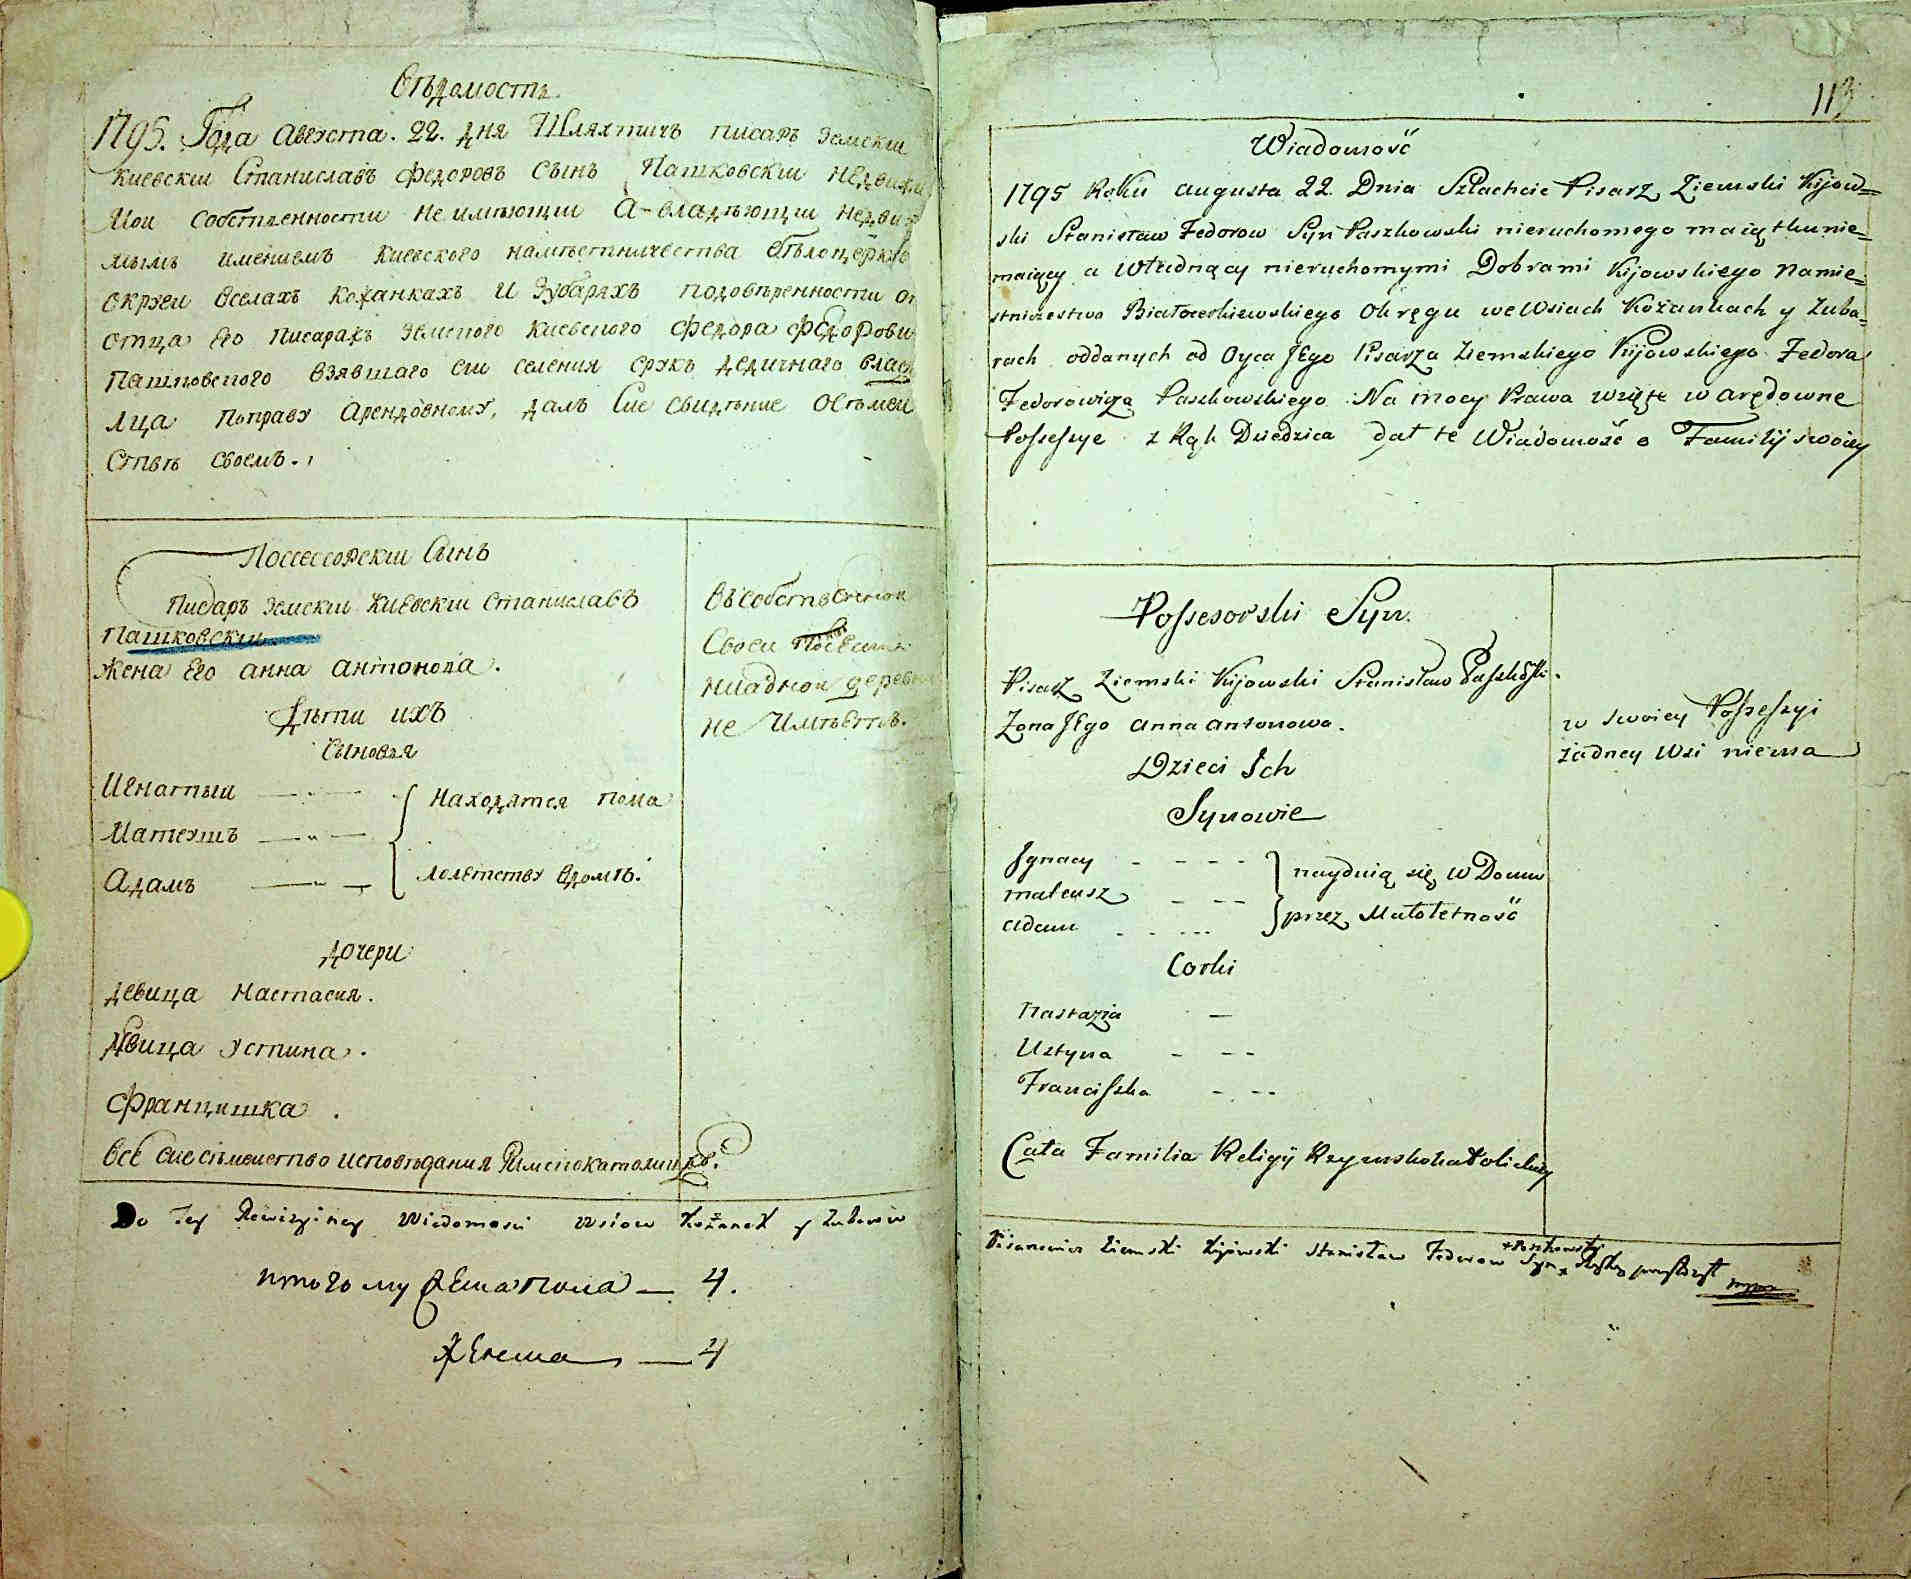 Вѣдомость
1795. Года Августа. 22. дня Шляхтичъ писаръ Земскии
Киевскии Станиславъ Федоровъ Сынъ Пашковскии недвижи
мои собственности не имѣющии а владѣющии недви
мымъ имениемъ Киевского намѣстничества Бѣлоцерков
округи вселахъ Кожанкахъ и Зубаряхъ подовѣренности от
отца Его Писаря Земского Киевского Федора Федорови
Пашковского взявшаго сии селения срукъ дедичнаго владе
лца поправу Арендовному, далъ Сие свидѣние Осѣмеи
ствѣ своемъ.
Поссессорскии Сынъ
Писаръ Земскии Киевскии Станиславъ
Пашковскии
жена Его анна антонова.
Дѣти ихъ
Сыновья
Игнатыи
Матеушъ
Адамъ
находятся пома
лолѣтству вдомѣ.
Дочери
девица Настасия.
девица Устина.
Францишка.
все сие сѣмеиство исповѣдания Римскокатолицкъ.
Въсобственнои
Своеи посесии
ниаднои деревни
не Имѣетъ.
Do Tey Rewizyiney Wiadomosci Wsiow Kożanek y Zubarow
итого мужеска пола — 4.
женска — 4
113
Wiadomość
1795 Roku augusta 22 Dnia Szlachcic Pisarz Ziemski Kijow=
ski Stanisław Fedorow Syn Paszkowski nieruchomego maiątku nie=
maiący a władnący nieruchomymi Dobrami Kijowskiego Namie=
stniczestwa Białocerkiewskiego Okręgu we Wsiach Kożankach y Zuba=
rach oddanych od Oyca JEgo Pisarza Ziemskiego Kijowskiego Fedora
Fedorowicza Paszkowskiego Na mocy Prawa wzięte w arędowne
Possessye z Rąk Dziedzica dał te Wiadomość o Familij swoiey
Possesorski Syn.
Pisarz Ziemski Kijowski Stanisław Paszkowski.
Zona JEgo anna antonowa.
Dzieci Ich
Synowie
Jgnacy
mateusz
adam
naydują się w Domu
przez Małoletność
Corki
Nastazia
Ustyna
Franciszka
Cała Familia Religij Rzymskokatolickiey
w swoiey Possessyi
żadney Wsi niema
Pisarzewicz Ziemski Kijowski Stanisław Fedorow Syn Paszkowski
mppa